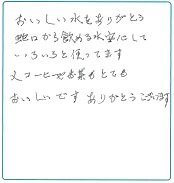 おいしい水をありがとう
蛇口から飲める水安心して
いろいろと使ってます
又コーヒーもお茶もとても
おいしいです ありがとうございます